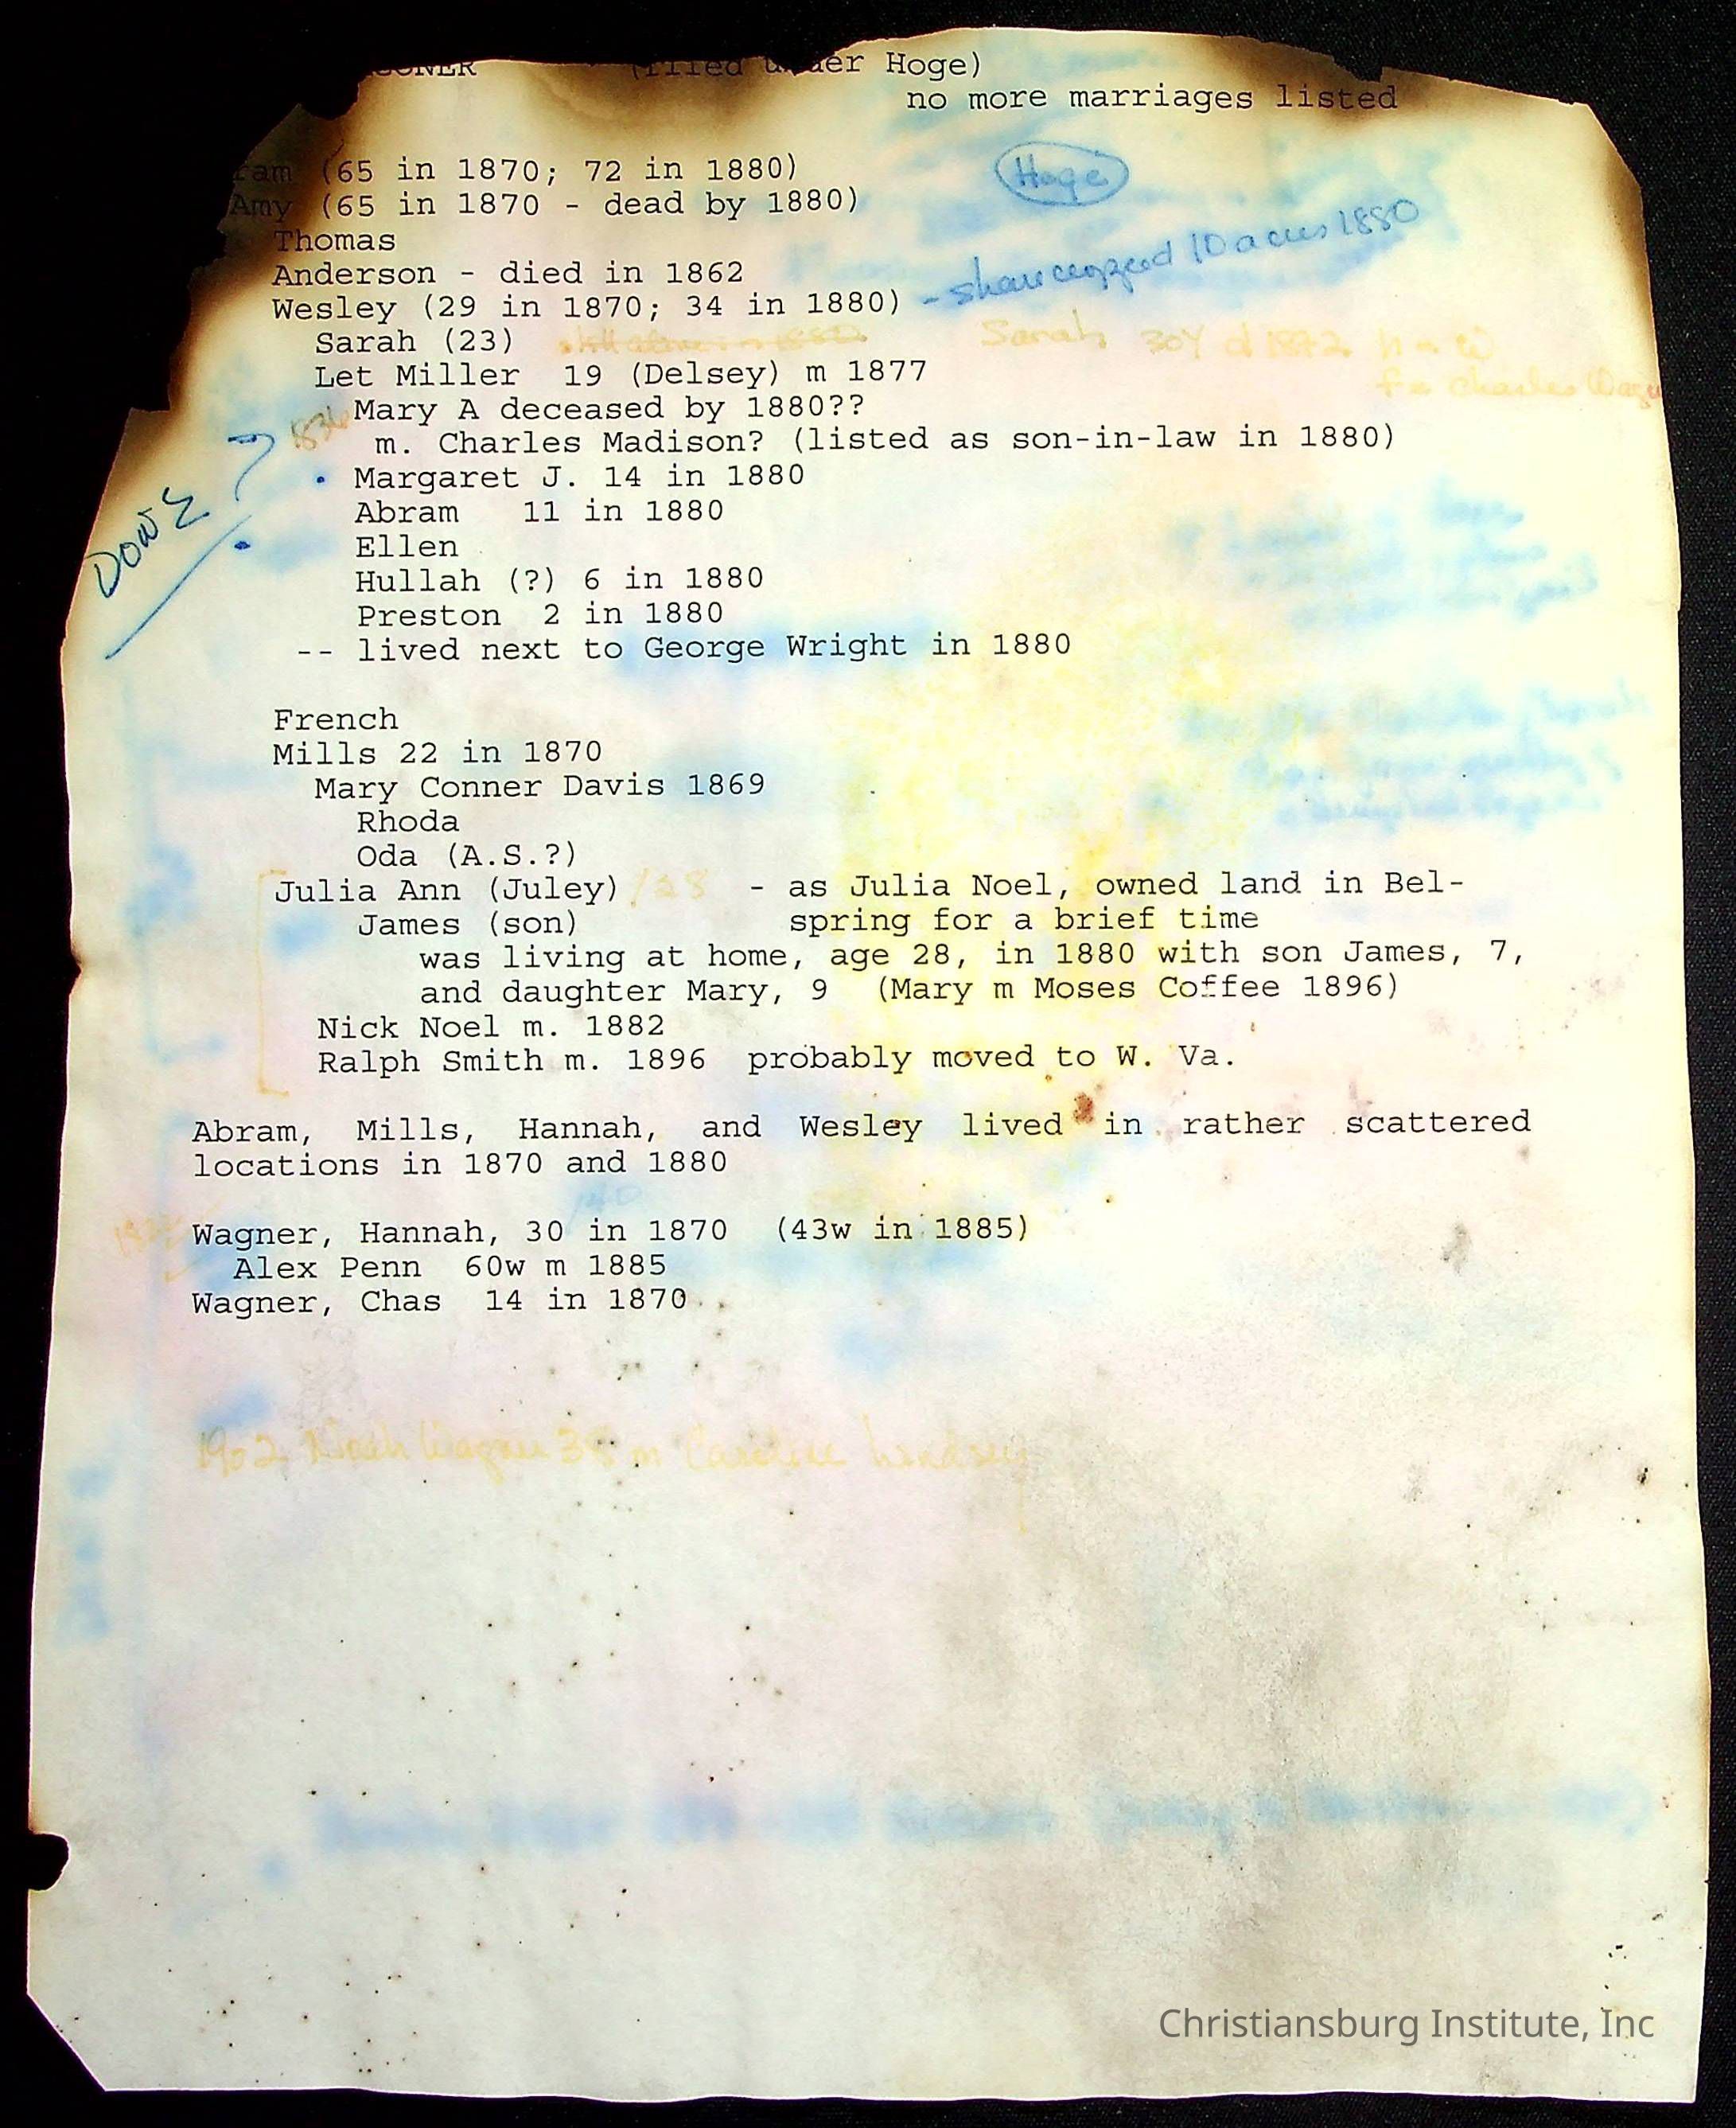 (filed under Hoge)
no more marriages listed
(65 in 1870; 72 in 1880)
Hoge
Amy (65 in 1870 - dead by 1880)
Thomas
Anderson - died in 1862
Wesley (29 in 1870; 34 in 1880) - sharecropped 10 acres 1880
Sarah (23) Sarah 30Y d 1872
Let Miller 19 (Delsey) m 1877 Charles
Mary A deceased by 1880??
m. Charles Madison? (listed as son-in-law in 1880)
Margaret J. 14 in 1880
DONE
Abram 11 in 1880
Ellen
Hullah (?) 6 in 1880
Preston 2 in 1880
-- lived next to George Wright in 1880
French
Mills 22 in 1870
Mary Conner Davis 1869
Rhoda
Oda (A.S.?)
Julia Ann (Juley) - as Julia Noel, owned land in Bel-
James (son) spring for a brief time
was living at home, age 28, in 1880 with son James, 7,
and daughter Mary, 9 (Mary m Moses Coffee 1896)
Nick Noel m. 1882
Ralph Smith m. 1896 probably moved to W. Va.
Abram, Mills, Hannah, and Wesley lived in rather scattered
locations in 1870 and 1880
Wagner, Hannah, 30 in 1870 (43w in 1885)
Alex Penn 60w m 1885
Wagner, Chas 14 in 1870
1902 Noah Wagner 38 m Caroline Lindsey
Christiansburg Institute, Inc